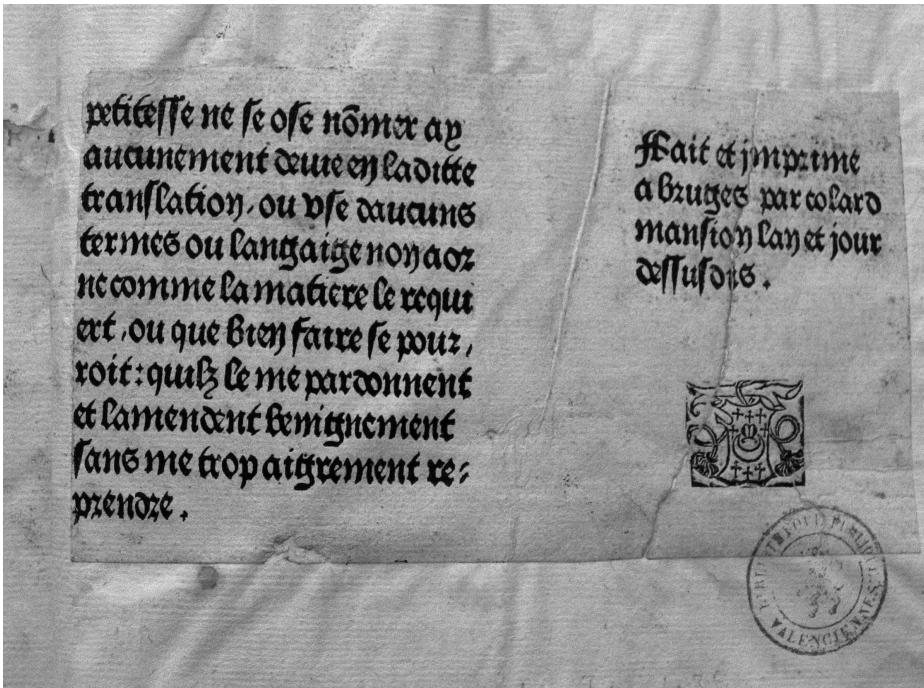 petitesse ne se ose nõmer ay
aucunement devie en laditte
translation, ou vse daucuns
termes ou langaige non aor
ne comme la matiere le requi
ert, ou que bien faire se pour,
roit: quilz le me pardonnent
et lamendent benignement
sans me trop aigrement re-
prendre.
Ffait et jmprime
a bruges par colard
mansion lan et jour
dessusdis.
BIBLIOTHEQUE PUBLIQUE
VALENCIENNES